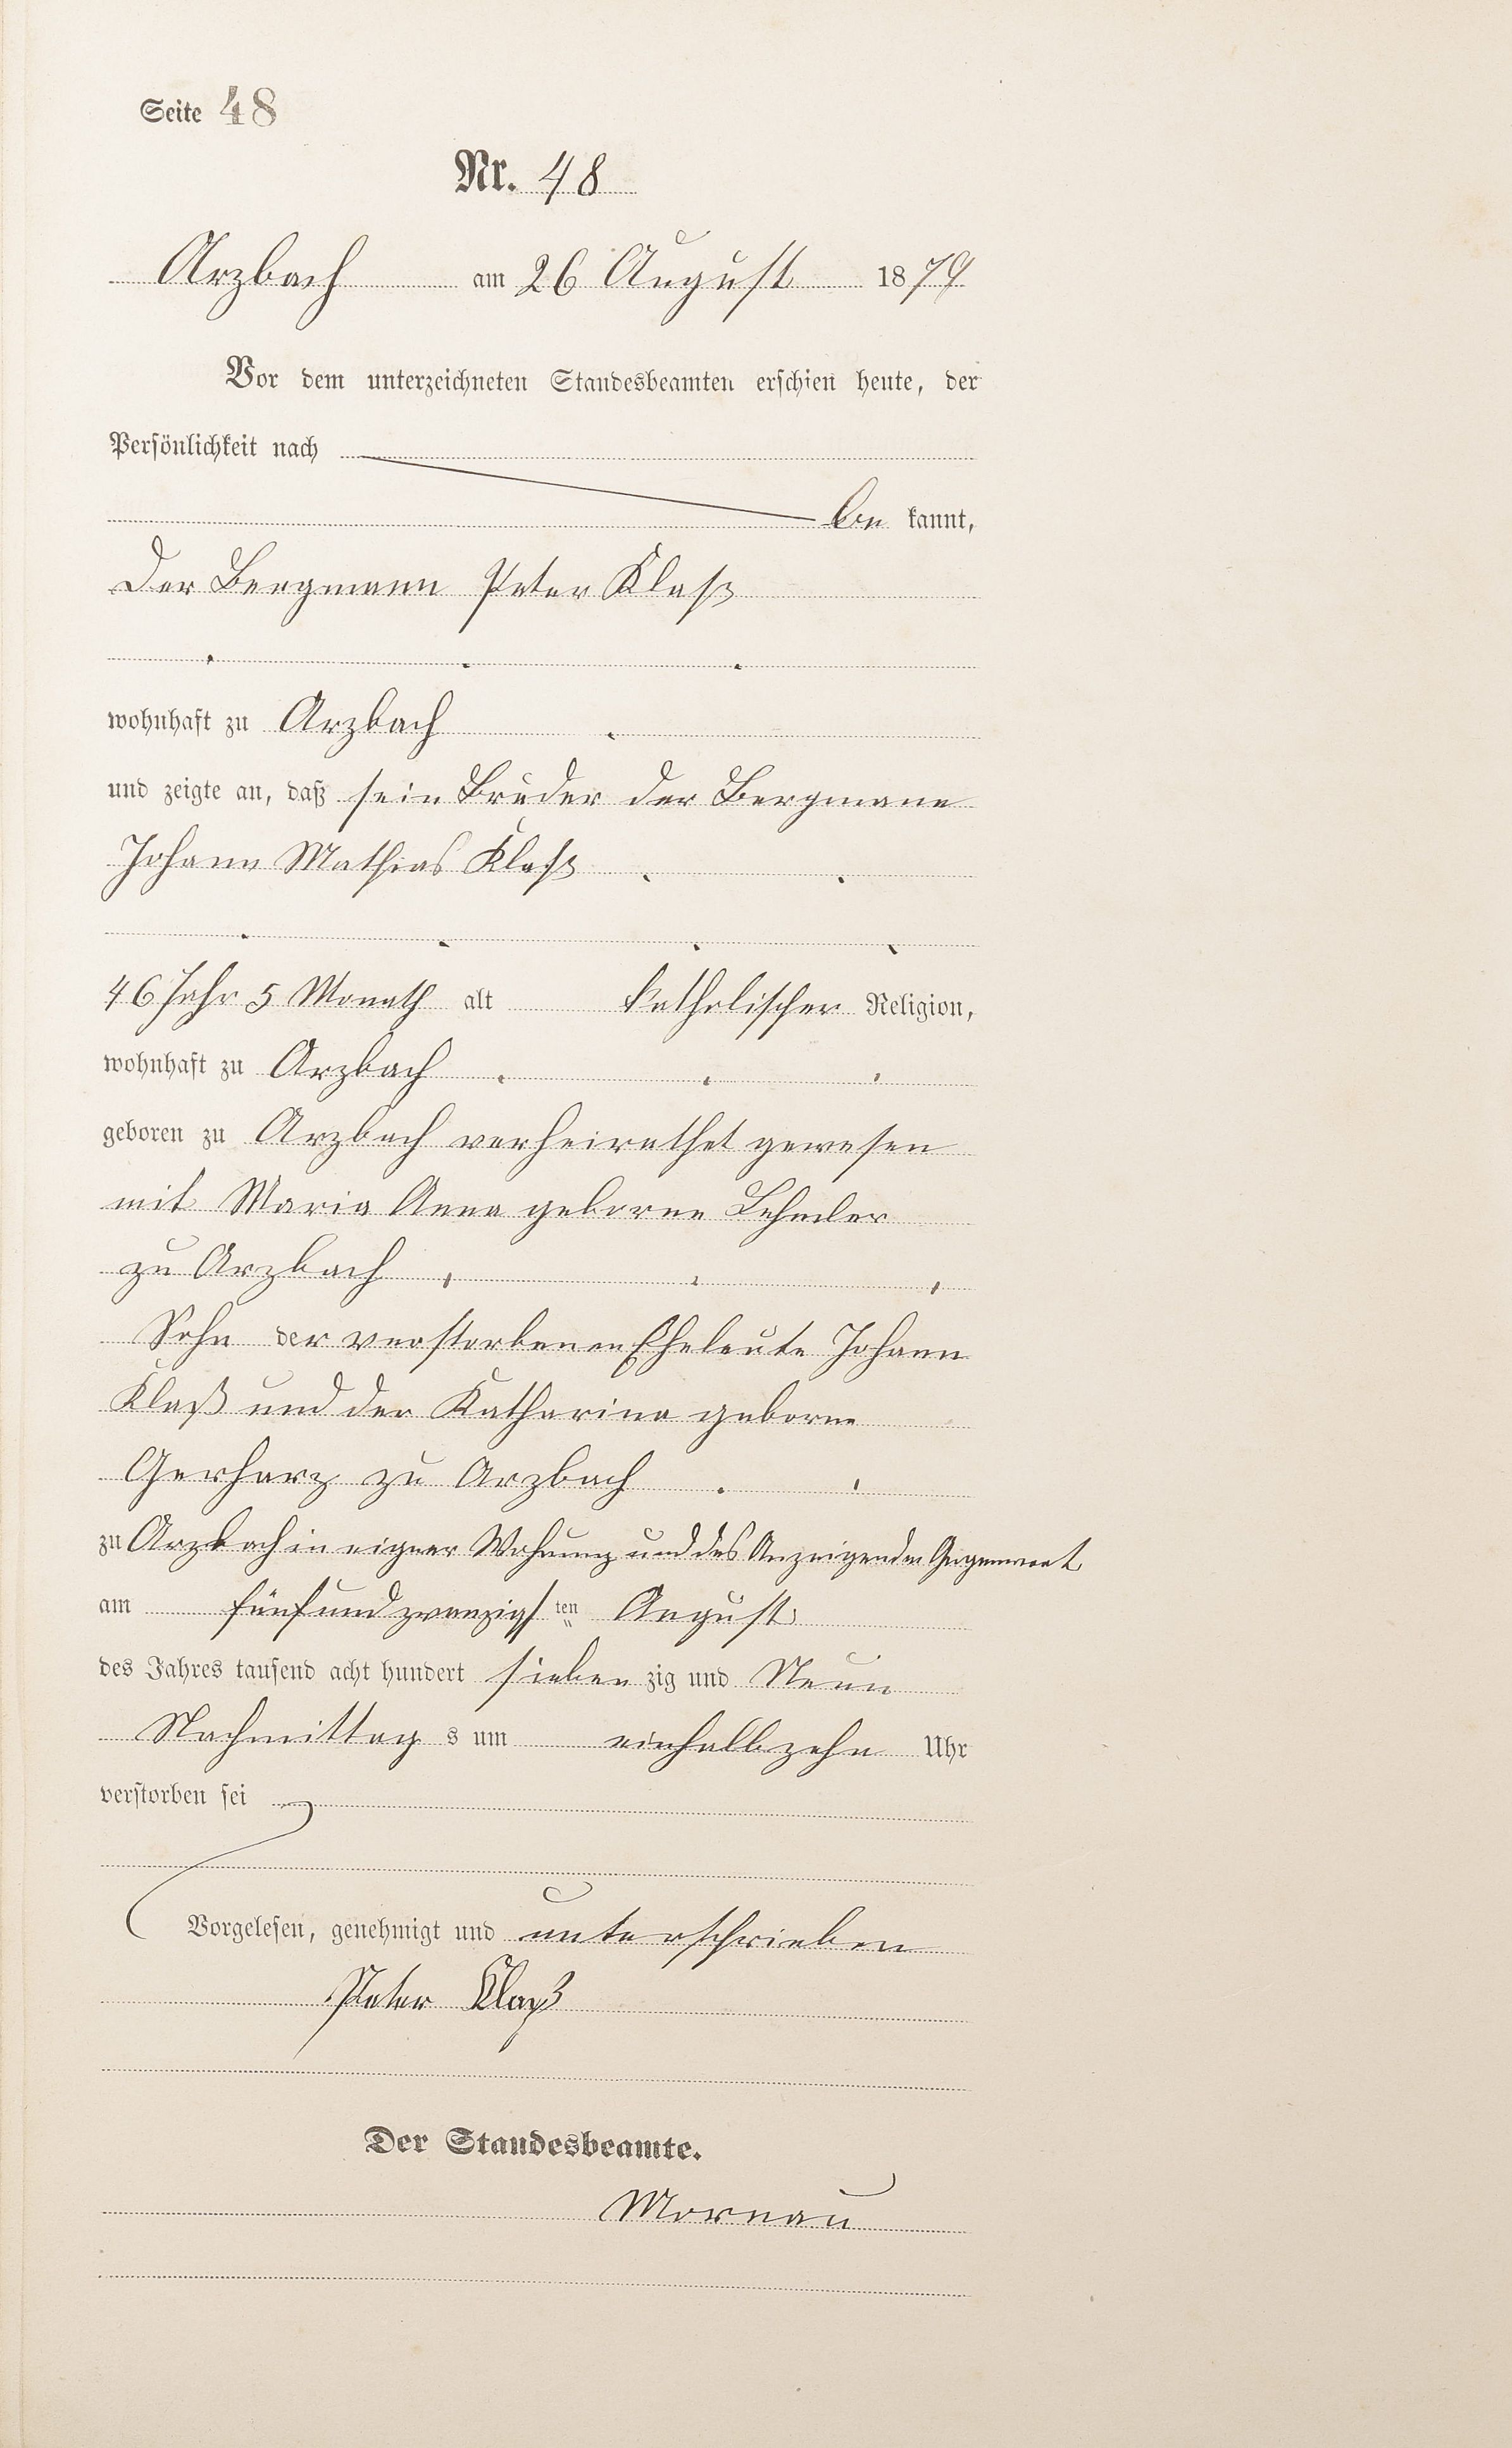 Seite 48
Nr. 48
Arzbach am 26 August 1879
Vor dem unterzeichneten Standesbeamten erschien heute, der
Persönlichkeit nach
be kannt,
Der Bergmann Peter Klaß
wohnhaft zu Arzbach
und zeigte an, daß sein Bruder der Bergmann
Johann Mathias Klaß
46 Jahr 5 Monath alt katholischer Religion,
wohnhaft zu Arzbach
geboren zu Arzbach verheirathet gewesen
mit Maria Anna geborne Lehmler
zu Arzbach
Sohn der verstorbenen Eheleute Johann
Klaß und der Katharina geborne
Gerharz zu Arzbach
zu Arzbach in eigner Wohnung und des Anzeigenden Gegenwart
am fünfundzwanzigs ten August
des Jahres tausend acht hundert sieben zig und Neun
Nachmittag s um einhalbzehn Uhr
verstorben sei
Vorgelesen, genehmigt und unterschrieben
Peter Klaß
Der Standesbeamte.
Mornau